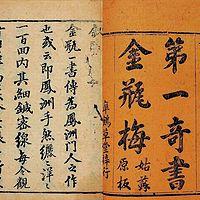 第一奇書
金瓶梅
姑蘇
原板
皐鶴草堂梓行
金瓶一書傳為鳳洲門人之作
也或云即鳳洲手然纚〻洋〻
一百回內其細鍼密線每令觀